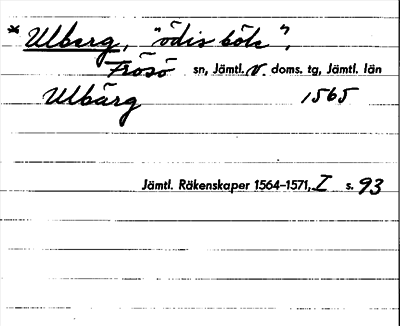 * Ulberg, "ödis böle".
Frösö sn, Jämtl. V. doms. tg, Jämtl. län
Ulbärg 1565
Jämtl. Räkenskaper 1564–1571, I s. 93